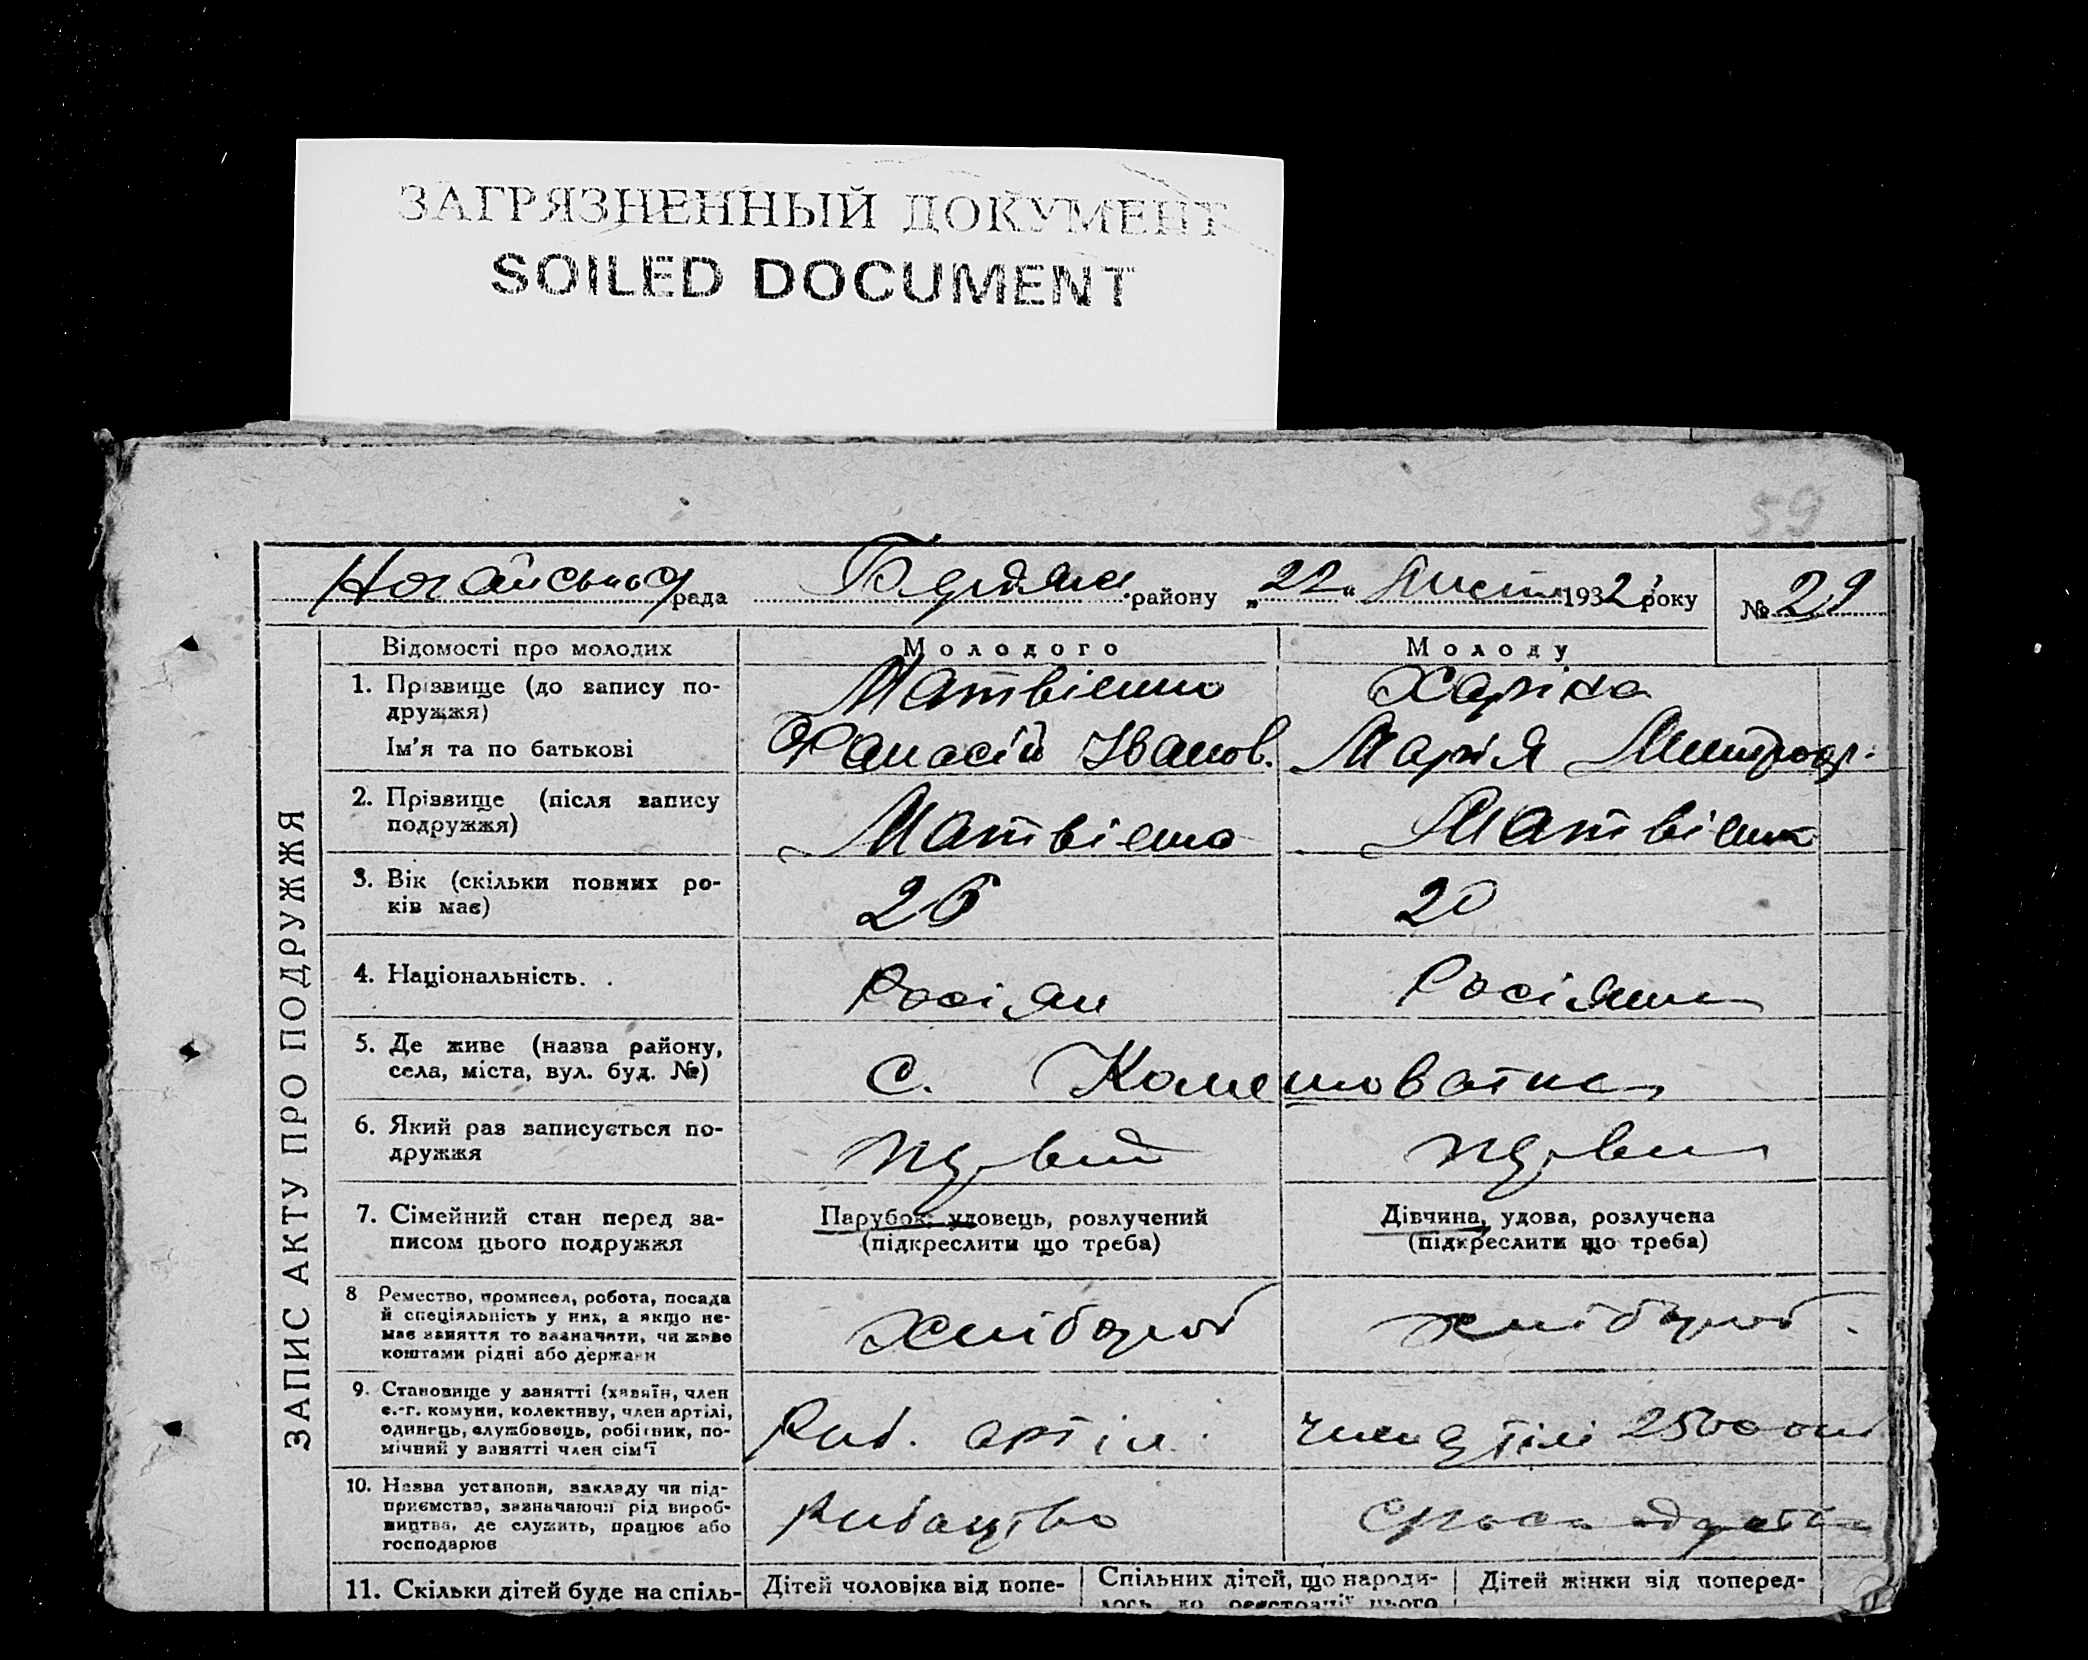 ЗАГРЯЗНЕННЫЙ ДОКУМЕНТ
SOILED DOCUMENT
59
Ногайської рада Бердянс. району „22“ Лист 1932 року № 29
ЗАПИС АКТУ ПРО ПОДРУЖЖЯ
Відомості про молодих Молодого Молоду
1. Прізвище (до запису по-
дружжя) Матвієнко Харіна
Ім'я та по батькові Фанасій Іванов. Марія
2. Прізвище (після запису
подружжя) Матвієнко Матвієнко
3. Вік (скільки повних ро-
ків має) 26 20
4. Національність. . Росіян Росіянка
5. Де живе (назва району,
села, міста, вул. буд. №) с.
6. Який раз записується по-
дружжя первий перви
7. Сімейний стан перед за-
писом цього подружжя
Парубок, удовець, розлучений
(підкреслити що треба)
Дівчина, удова, розлучена
(підкреслити що треба)
8 Ремество, промисел, робота, посада
й спеціяльність у них, а якщо не-
має заняття то зазначити, чи живе
коштами рідні або держави
хлібороб хлібороб.
9. Становище у занятті (хазяїн, член
с.-г. комуни, колективу, член артілі,
одинець, службовець, робітник, по-
мічний у занятті член сім'ї
Риб. артіл. член артілі
10. Назва установи, закладу чи під-
приємства, зазначаючи рід вироб-
ництва, де служить, працює або
господарює
Рибацтво
11. Скільки дітей буде на спіль-
Дітей чоловіка від попе-
Спільних дітей, що народи-
лось до реєстрації цього
Дітей жінки від поперед-